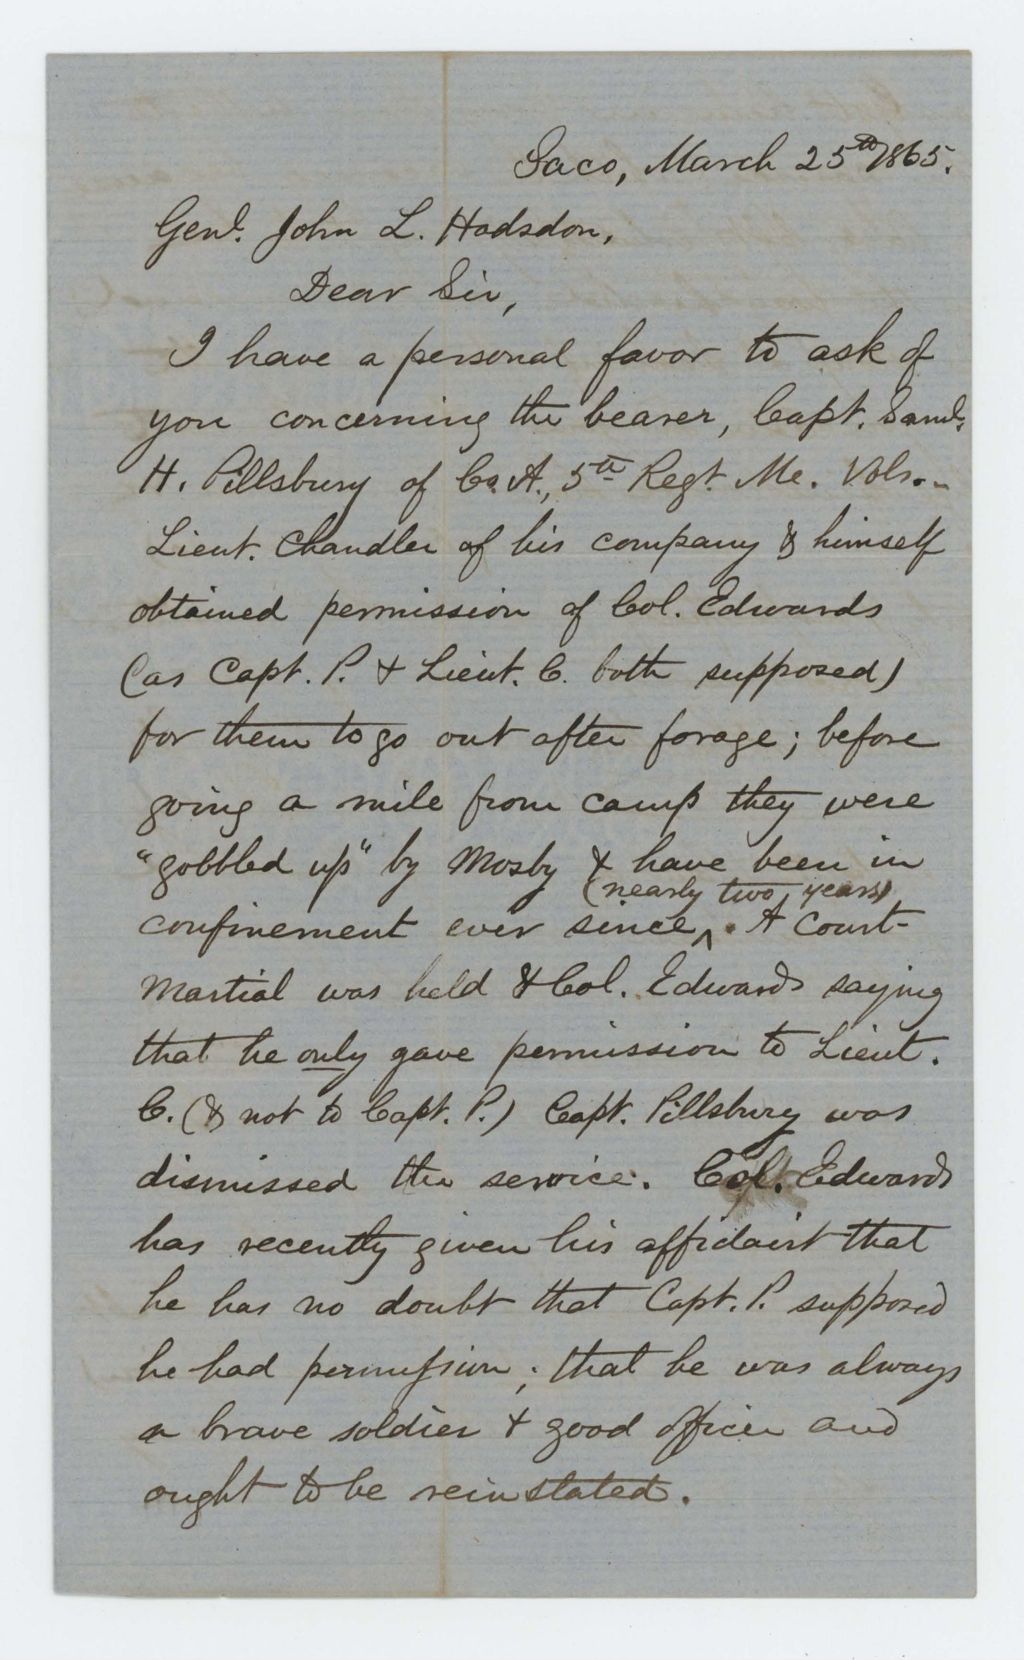 Saco, March 25th 1865.
Genl. John L. Hodsdon,
Dear Sir,
I have a personal favor to ask of
you concerning the bearer, Capt. Saml.
H. Pillsbury of Co. A., 5th Regt. Me. Vols.-
Lieut. Chandler of his company & himself
obtained permission of Col. Edwards
(as Capt. P. & Lieut. C. both supposed)
for them to go out after forage; before
going a mile from camp they were
"gobbled up" by Mosby & have been in
(nearly two years)
confinement ever since ^. A Court-
Martial was held & Col. Edwards saying
that he only gave permission to Lieut.
C. (& not to Capt. P.) Capt. Pillsbury was
dismissed the service. Col. Edwards
has recently given his affidavit that
he has no doubt that Capt. P. supposed
he had permission; that he was always
a brave soldier & good officer and
ought to be reinstated.